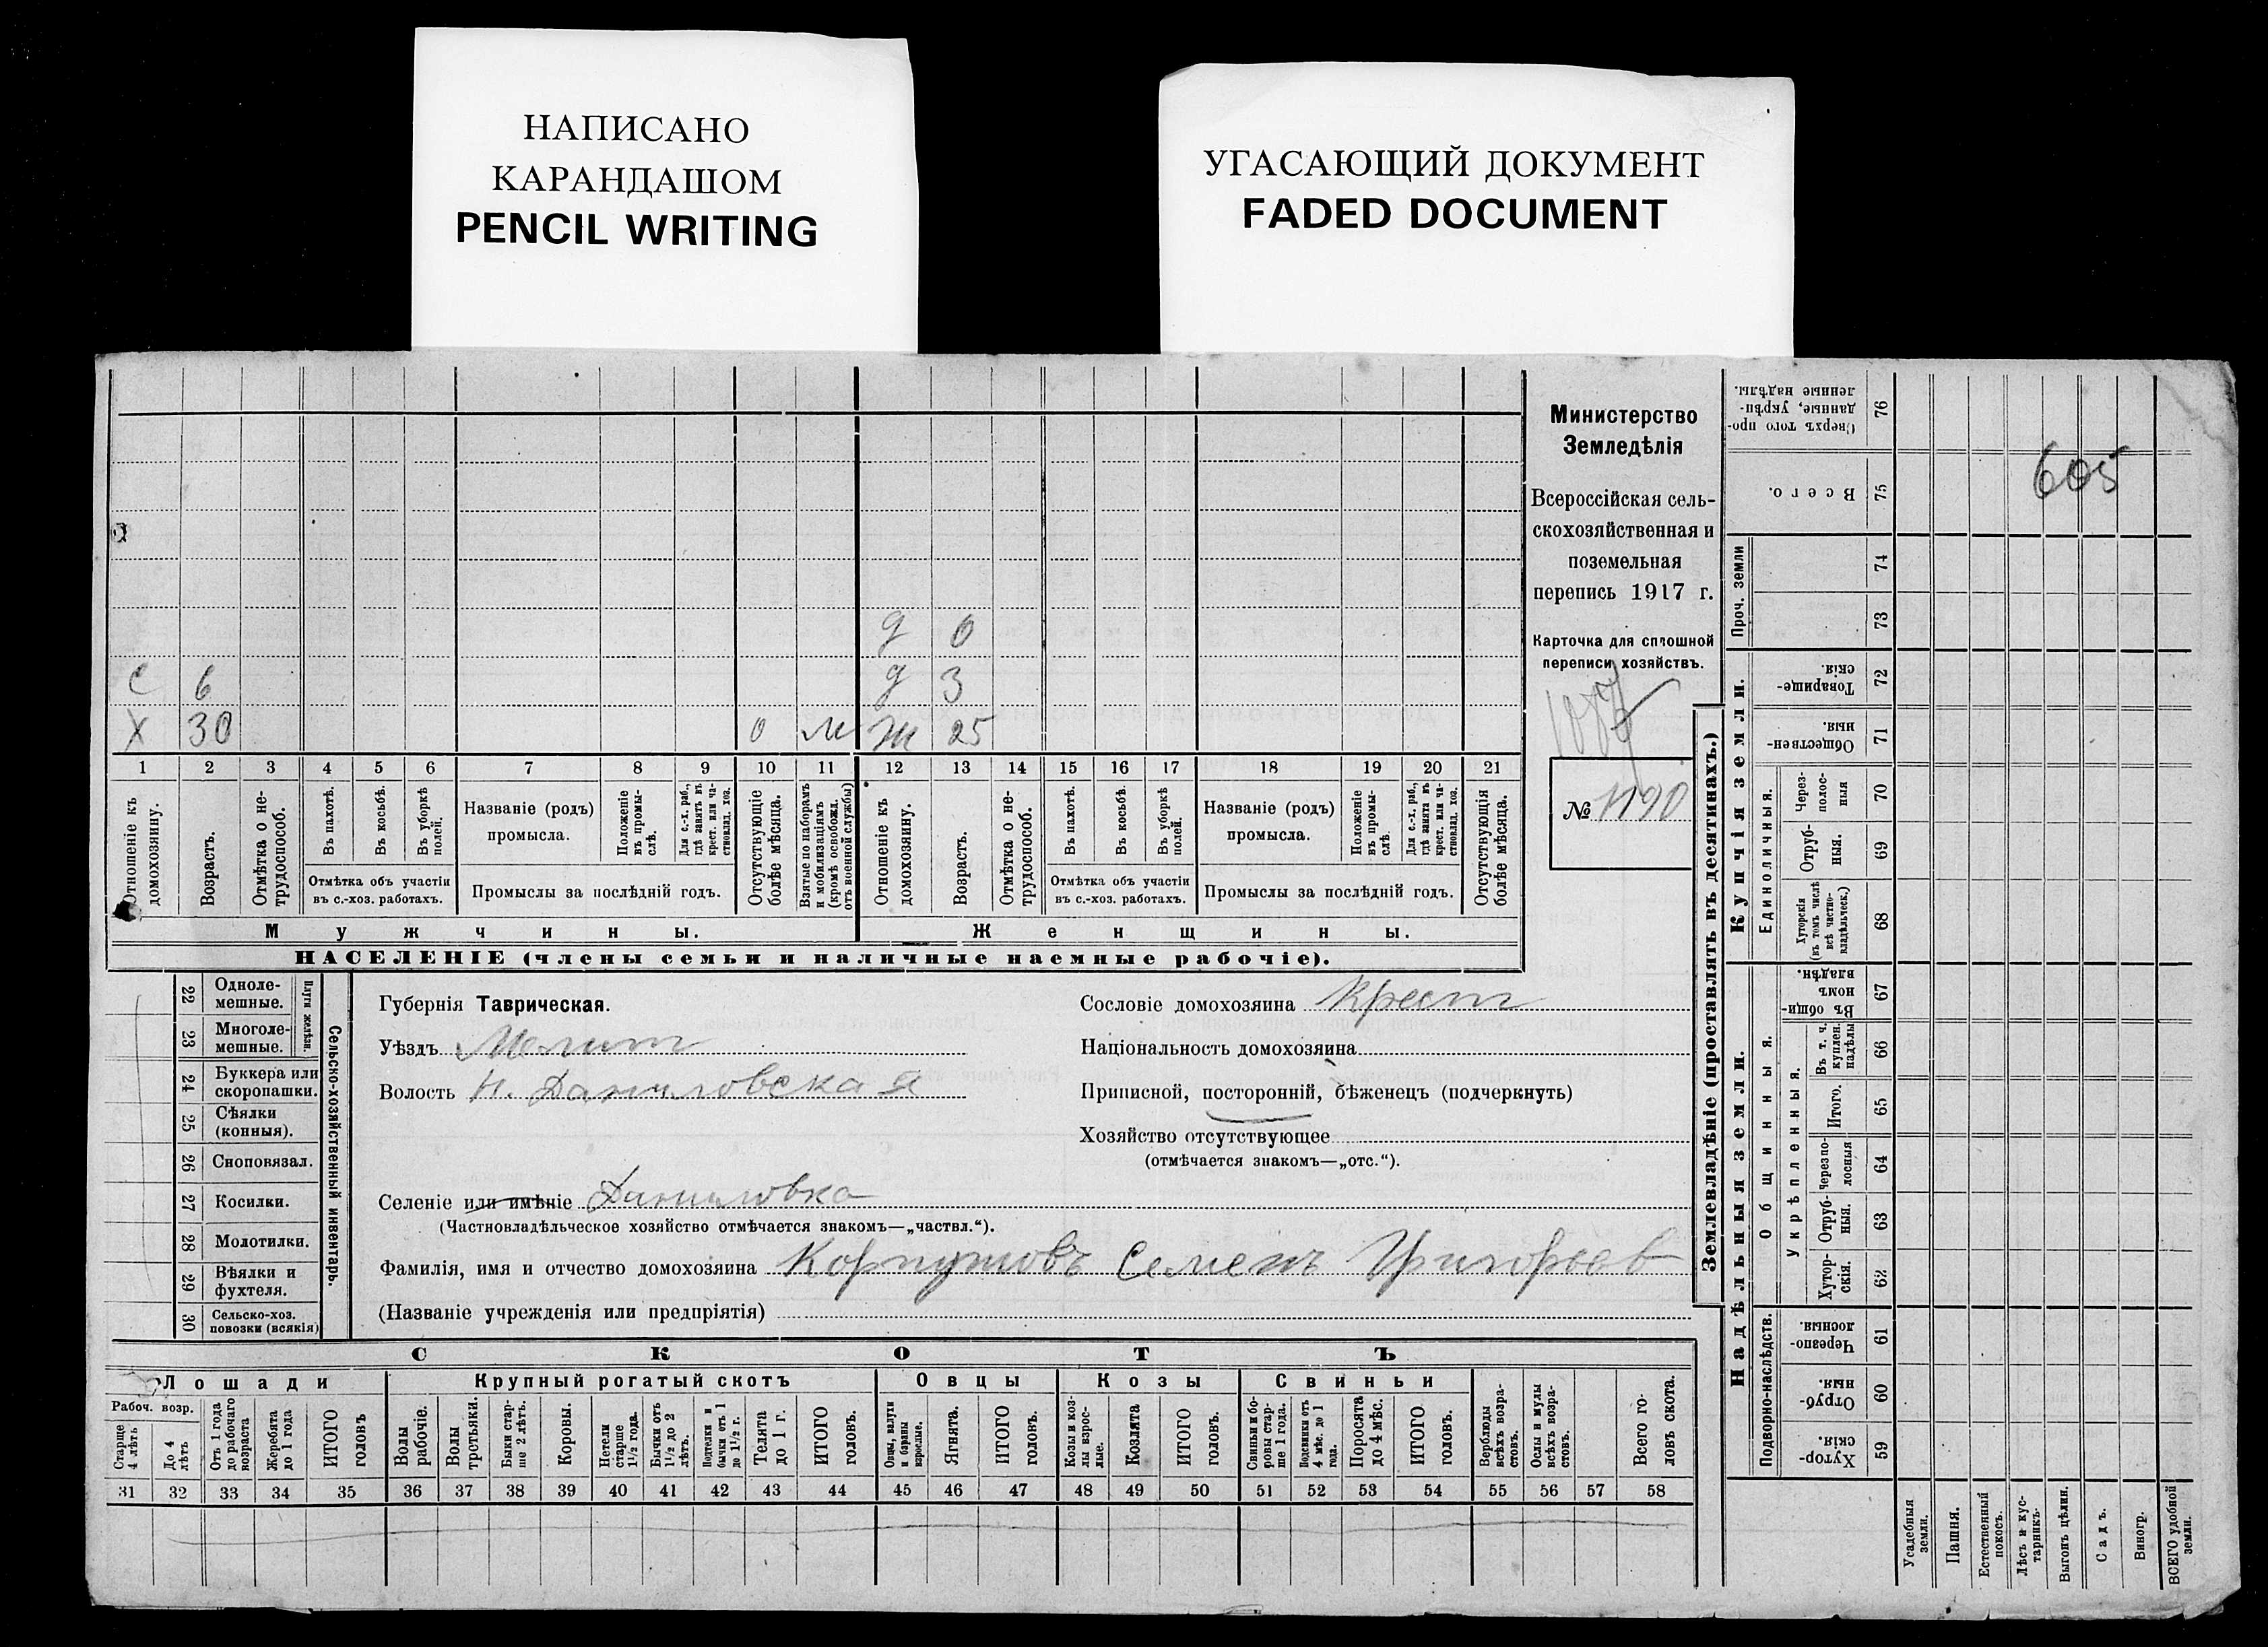 НАПИСАНО
КАРАНДАШОМ
PENCIL WRITING
УГАСАЮЩИЙ ДОКУМЕНТ
FADED DOCUMENT
д 0
С 6 д 3
Х 30 0 м Ж 25
1 2 3 4 5 6 7 8 9 10 11 12 13 14 15 16 17 18 19 20 21
Отношеніе къ домохозяину.
Возрастъ.
Отмѣтка о не-трудоспособ.
Въ пахотѣ.
Въ косьбѣ.
Въ уборкѣ полей.
Отмѣтка объ участіи
въ с.-хоз. работахъ.
Названіе (родъ)
промысла.
Положеніе въ промы-слѣ.
Для с.-х. раб., гдѣ занятъ въ крест. или ча-стновлад. хоз.
Промыслы за послѣдній годъ.
Отсутствующіе болѣе мѣсяца.
Взятые по наборамъ и мобилизаціямъ (кромѣ освобожд. отъ военной службы)
Отношеніе къ домохозяину.
Возрастъ.
Отмѣтка о не-трудоспособ.
Въ пахотѣ.
Въ косьбѣ.
Въ уборкѣ полей.
Отмѣтка объ участіи
въ с.-хоз. работахъ.
Названіе (родъ)
промысла.
Положеніе въ промы-слѣ.
Для с.-х. раб., гдѣ занята въ крест. или ча-стновлад. хоз.
Промыслы за послѣдній годъ.
Отсутствующія болѣе мѣсяца.
Мужчины.
Женщины.
НАСЕЛЕНІЕ (члены семьи и наличные наемные рабочіе).
Министерство
Земледѣлія
Всероссійская сель-
скохозяйственная и
поземельная
перепись 1917 г.
Карточка для сплошной
переписи хозяйствъ.
№ 1190
Сельско-хозяйственный инвентарь.
Плуги желѣзн.
22 Одноле-мешные.
23 Многоле-мешные.
24 Буккера или скоропашки.
25 Сѣялки (конныя).
26 Сноповязал.
27 Косилки.
28 Молотилки.
29 Вѣялки и фухтеля.
30 Сельско-хоз. повозки (всякія)
Губернія Таврическая.
Уѣздъ Мелит
Волость Н. Даниловская
Селеніе или имѣніе Даниловка
(Частновладѣльческое хозяйство отмѣчается знакомъ—„частвл.“).
Фамилія, имя и отчество домохозяина Корпусовъ Семенъ Григорьев
(Названіе учрежденія или предпріятія)
Сословіе домохозяина Крест
Національность домохозяина
Приписной, посторонній, бѣженец (подчеркнуть)
Хозяйство отсутствующее
(отмѣчается знакомъ—„отс.“).
СКОТЪ
Лошади
Рабоч. возр.
Старше 4 лѣтъ
До 4 лѣтъ
Отъ 1 года до рабочаго возраста
Жеребята до 1 года
ИТОГО головъ
Крупный рогатый скотъ
Волы рабочіе.
Волы третьяки.
Быки стар-ше 2 лѣтъ.
Коровы.
Нетели старше 1½ года.
Бычки отъ 1½ до 2 лѣтъ.
Подтелки и бычки отъ 1 до 1½ г.
Телята до 1 г.
ИТОГО головъ.
Овцы
Овцы, валухи и бараны взрослые.
Ягнята.
ИТОГО головъ.
Козы
Козы и коз-лы взрос-лые.
Козлята
ИТОГО головъ.
Свиньи
Свиньи и бо-ровы стар-ше 1 года.
Подсвинки отъ 4 мѣс. до 1 года.
Поросята до 4 мѣс.
ИТОГО головъ.
Верблюды всѣхъ возра-стовъ.
Ослы и мулы всѣхъ возра-стовъ.
Всего го-ловъ скота.
31 32 33 34 35 36 37 38 39 40 41 42 43 44 45 46 47 48 49 50 51 52 53 54 55 56 57 58
Землевладѣніе (проставлять въ десятинахъ.)
Сверхъ того про-данные, укрѣп-ленные надѣлы. 76
Всего. 75
605
Проч. земли
74
73
Купчія земли.
Товарище-скія. 72
Обществен-ныя. 71
Единоличныя.
Через-полос-ныя 70
Отруб-ныя. 69
Хуторскія (въ томъ числѣ всѣ частно-владѣльческ.) 68
Надѣльныя земли.
Общинныя.
Въ общи-номъ владѣн. 67
Укрѣпленныя.
Въ т. ч. куплен. надѣлы 66
Итого. 65
Черезпо-лосныя 64
Отруб-ныя. 63
Хутор-скія. 62
Подворно-наслѣдств.
Черезпо-лосныя. 61
Отруб-ныя. 60
Хутор-скія. 59
Усадебныя земли.
Пашня.
Естественный покосъ.
Лѣсъ и кус-тарникъ.
Выгонъ цѣлин.
Садъ.
Виногр.
ВСЕГО удобной земли.